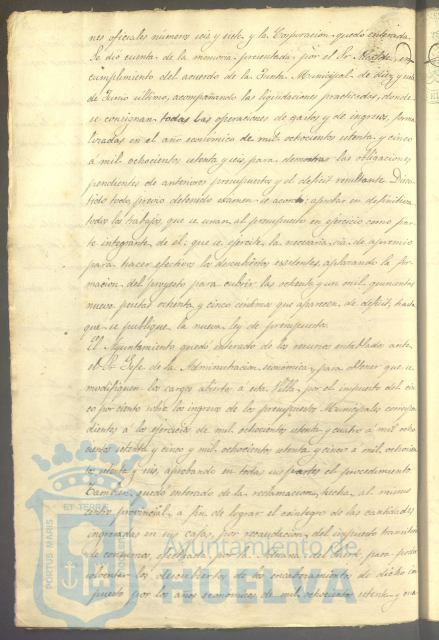 nes oficiales números seis y siete y la Corporacion quedó enterada.
Se dió cuenta de la memoria presentada por el Sr. Alcalde, en
cumplimiento del acuerdo de la Junta Municipal de diez y seis
de Junio último, acompañando las liquidaciones practicadas, donde
se consignan todas las operaciones de gastos y de ingresos, forma
lizadas en el año económico de mil ochocientos setenta y cinco
á mil ochocientos setenta y seis, para demostrar las obligaciones
pendientes de anteriores presupuestos y el deficit resultante. Discu
tido todo, previo detenido examen se acordó: aprobar en definitiva
todos los trabajos, que se unan al presupuesto en ejercicio como par
te integrante de él: que se ejercite la necesaria via de apremio
para hacer efectivos los descubiertos existentes, aplazando la for
macion del proyecto para cubrir las ochenta y un mil quinientas
nueve pesetas ochenta y cinco centimos que aparecen de deficit, hasta
que se publique la nueva ley de presupuesto.
El Ayuntamiento quedó enterado de los recursos entablados ante
el Sr. Gefe de la Administracion económica, para obtener que se
modifiquen los cargos abiertos á esta Villa, por el impuesto del cin
co por ciento sobre los ingresos de los presupuestos Municipales correspon
dientes á los ejercicios de mil ochocientos setenta y cuatro á mil ocho
cientos setenta y cinco y mil ochocientos setenta y cinco á mil ochocien
tos setenta y seis, aprobando en todas sus partes el procedimiento.
Tambien quedó enterado de la reclamacion hecha al mismo
centro provincial, á fin de lograr el reintegro de las cantidades
ingresadas en sus cajas, por recaudacion del impuesto transitorio
de consumos, para poder
solventar los descubiertos de los encabezamientos de dicho im
puesto por los años económicos de mil ochocientos setenta y
PORTUS MARIS
ET TERRE
CUSTODIA
Ayuntamiento de
HUELVA